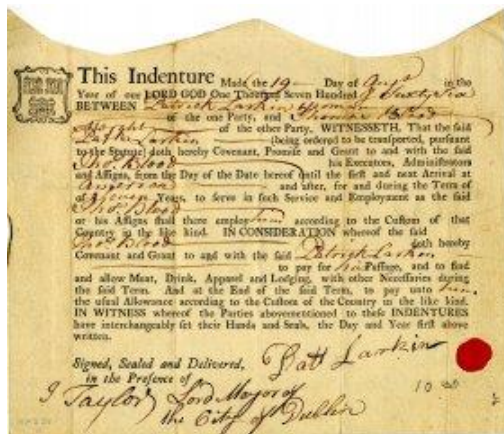 This Indenture Made the 19 Day of Aug.t in the
Year of our LORD GOD One Thousand Seven Hundred & Sixty Six
BETWEEN Patrick Larkin
of the one Party, and Thomas Blood
of the other Party, WITNESSETH, That the said
Larkin (being ordered to be transported, pursuant
to the Statute) doth hereby Covenant, Promise and Grant to and with the said
Tho.s Blood his Executors, Administrators
and Assigns, from the Day of the Date hereof until the first and next Arrival at
and after, for and during the Term of
Seven Years, to serve in such Service and Employment as the said
Tho.s Blood
or his Assigns shall there employ him according to the Custom of that
Country in the like kind. IN CONSIDERATION whereof the said
Tho.s Blood doth hereby
Covenant and Grant to and with the said Patrick Larkin
to pay for his Passage, and to find
and allow Meat, Drink, Apparel and Lodging, with other Necessaries during
the said Term. And at the End of the said Term, to pay unto him
the usual Allowance according to the Custom of the Country in the like kind.
IN WITNESS whereof the Parties abovementioned to these INDENTURES
have interchangeably set their Hands and Seals, the Day and Year first above
written.
Signed, Sealed and Delivered,
in the Presence of
Patt Larkin
J Taylor Lord Mayor of
the City of Dublin